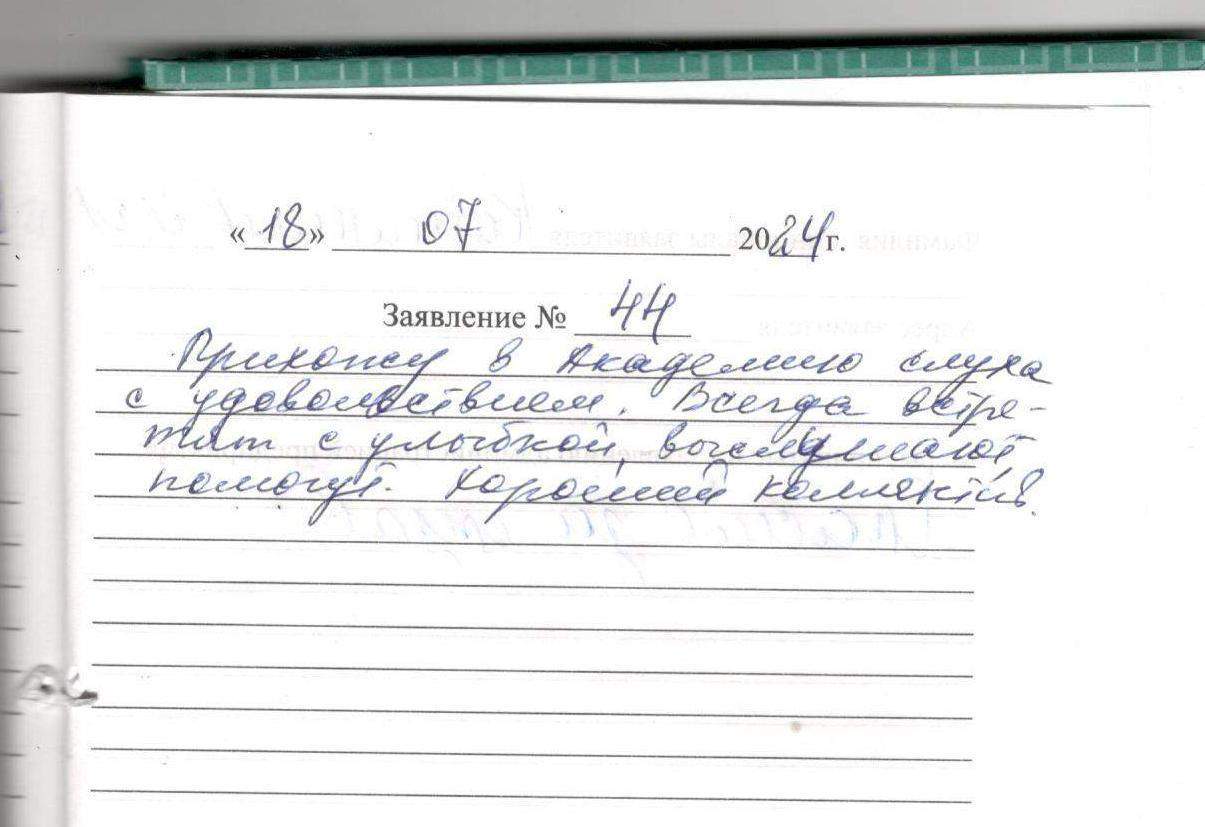 «18» 07 2024 г.
Заявление № 44
Прихожу в Академию слуха
с удовольствием. Всегда встре-
тят с улыбкой, выслушают
помогут. Хороший коллектив.